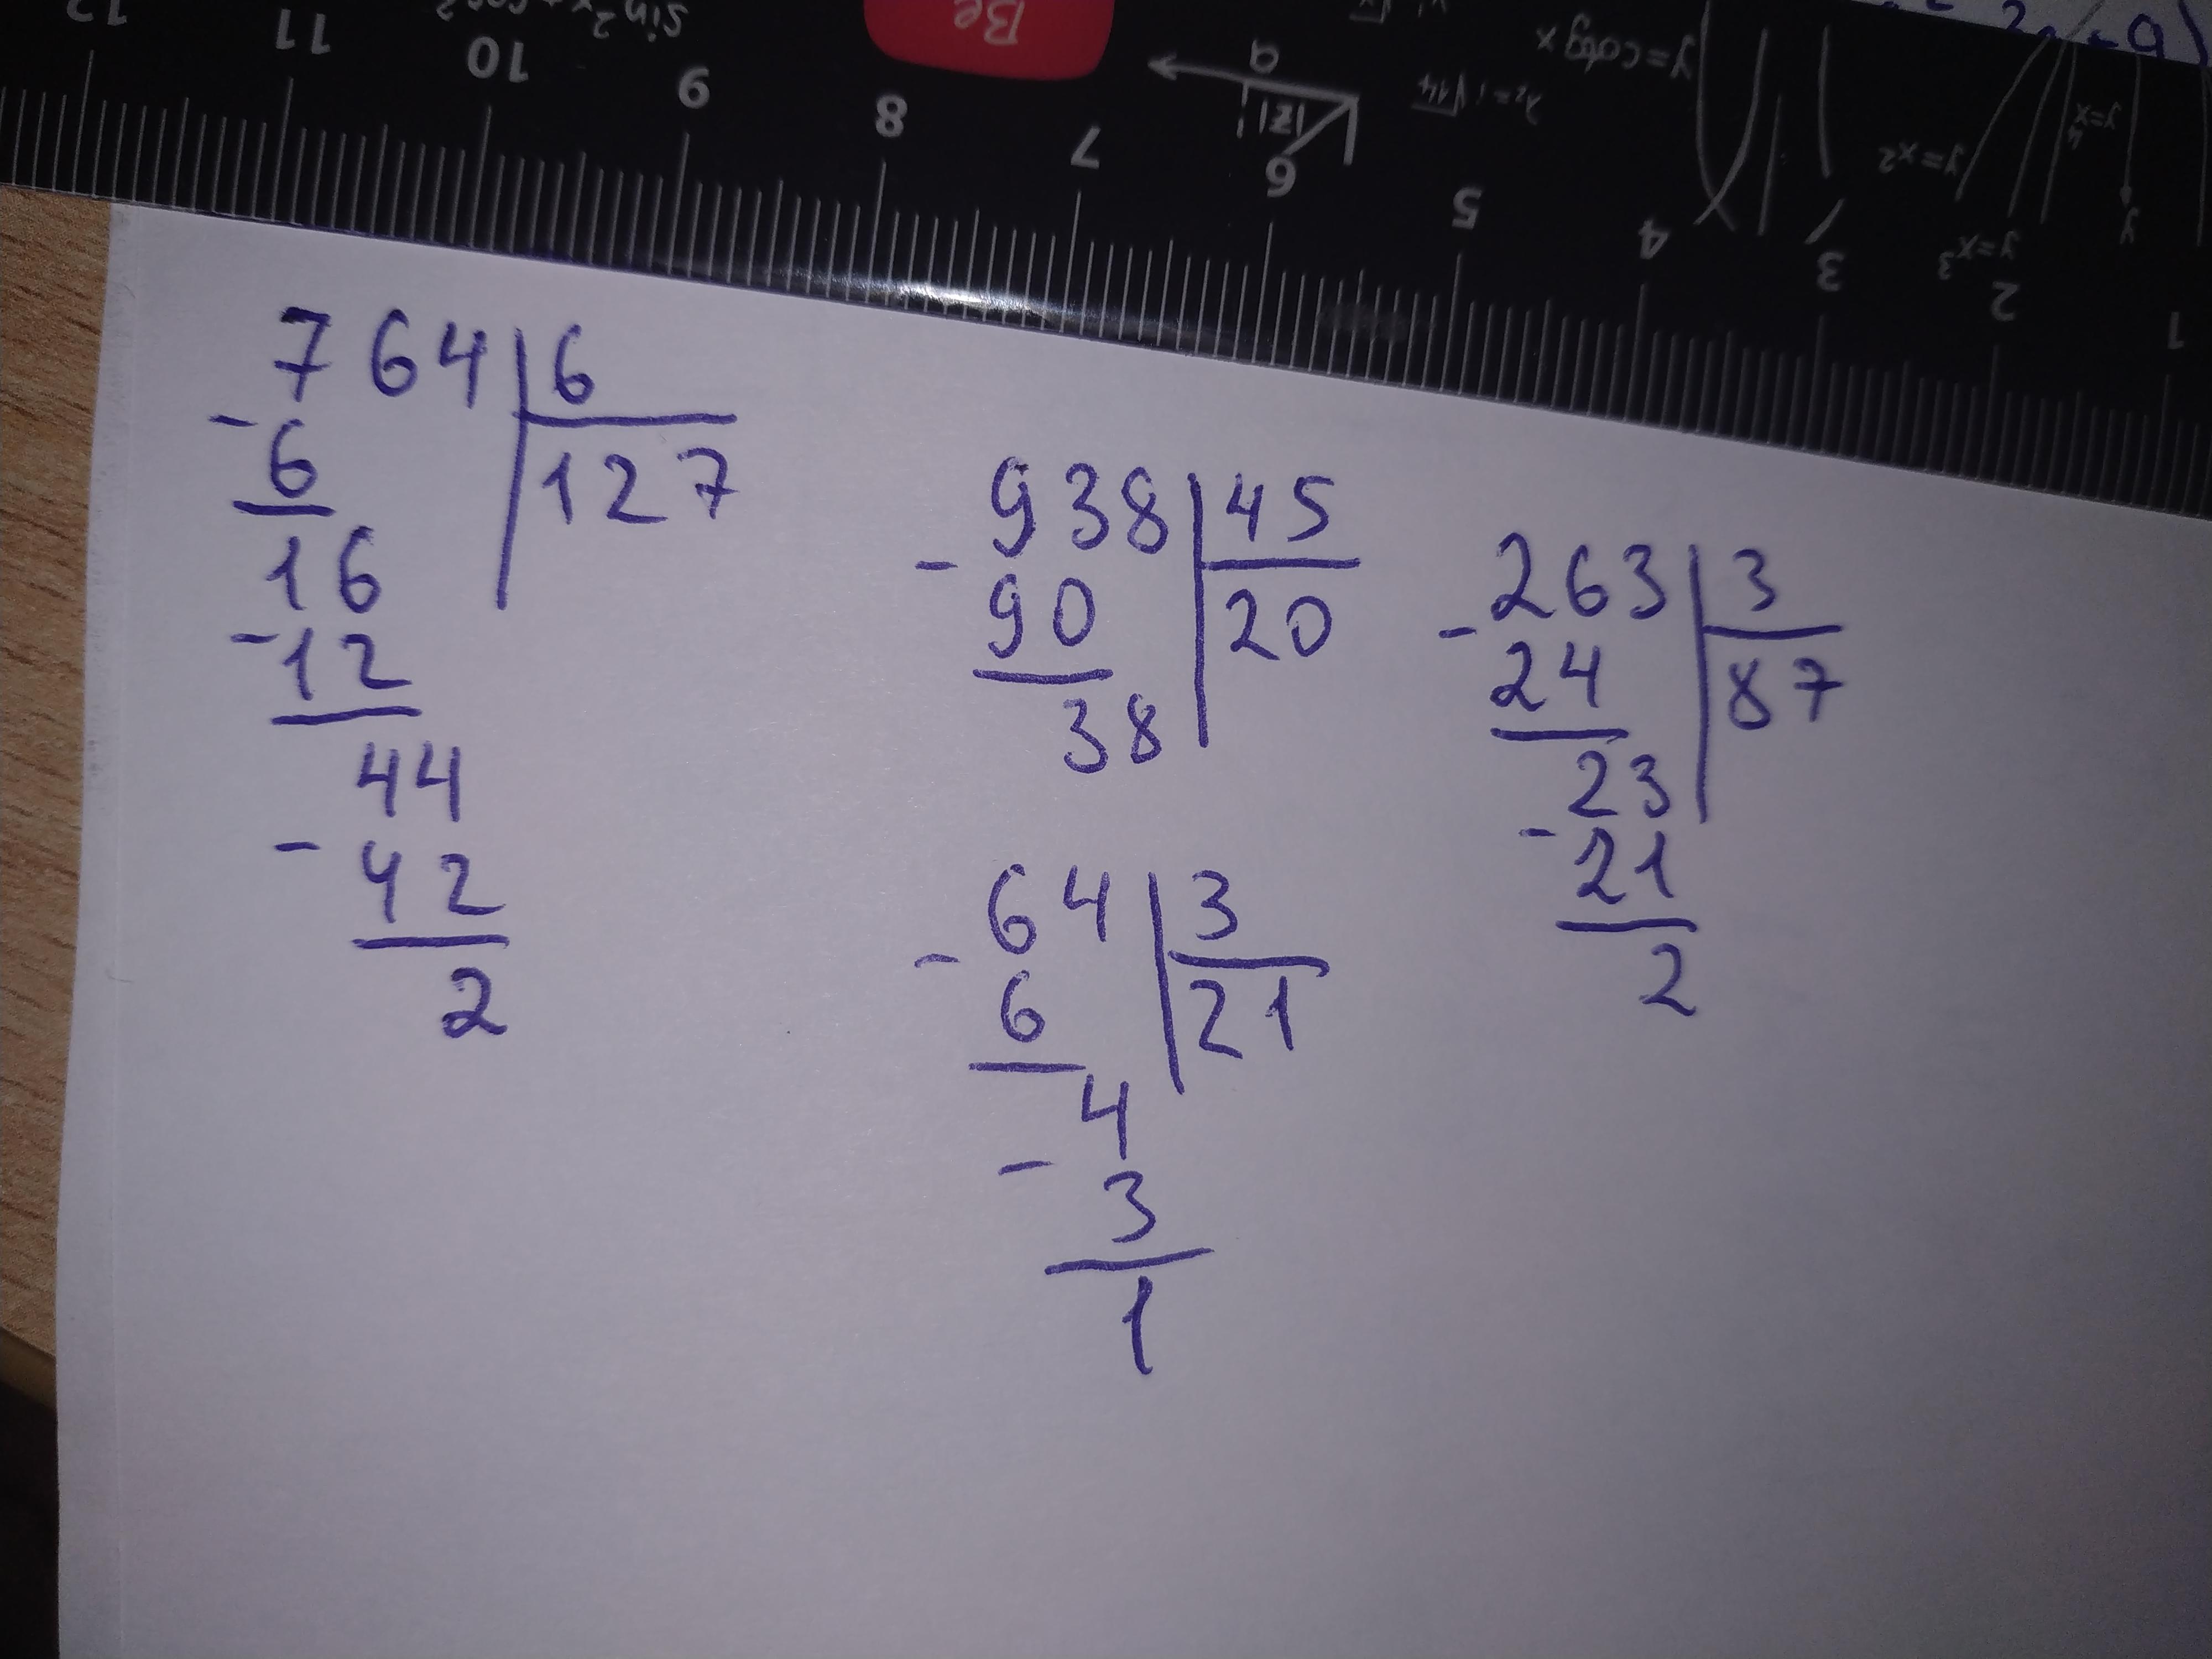 12 11 10 9 8 7 6 5 4 3 2 1
Be
a
|z|
y=cotgx
y=x²
y=x³
y=x⁴
y
764 6
- 6 127
16
- 12
44
- 42
2
938 45
- 90 20
38
64 3
- 6 21
4
- 3
1
263 3
- 24 87
23
- 21
2